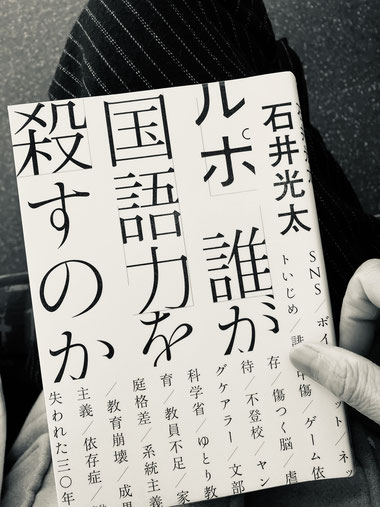 石井光太
ルポ 誰が
国語力を
殺すのか
SNS／ボイ ット／ネッ
トいじめ／誹 中傷／ゲーム依
存／傷つく脳／虐
待／不登校／ヤン
グケアラー／文部
科学省／ゆとり教
育／教員不足／家
庭格差／系統主義
教育崩壊／成果
主義／依存症／
失われた三〇年